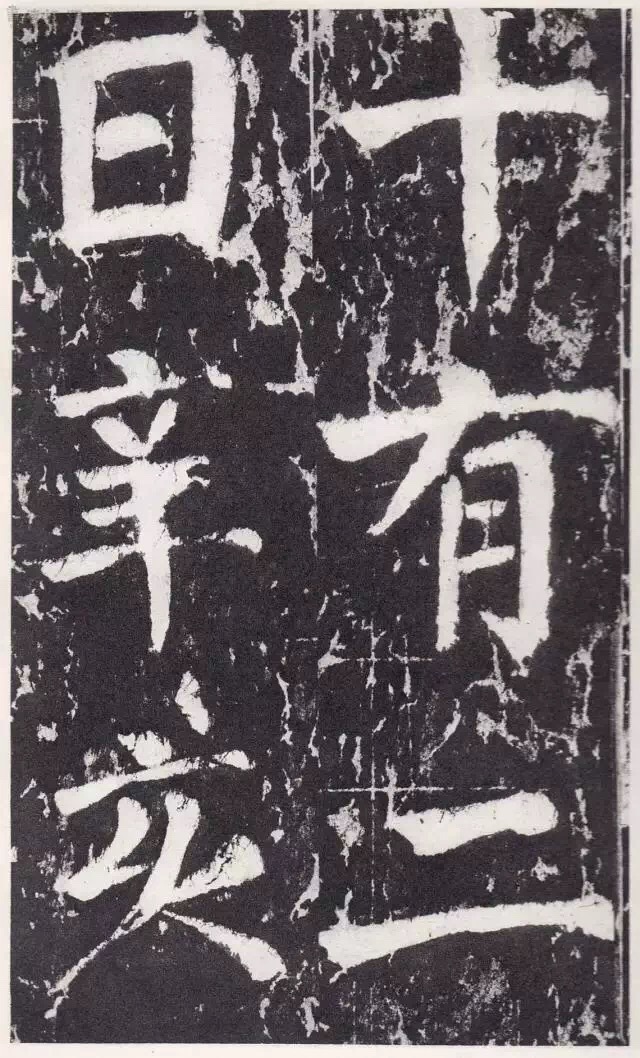 十有二
日辛亥